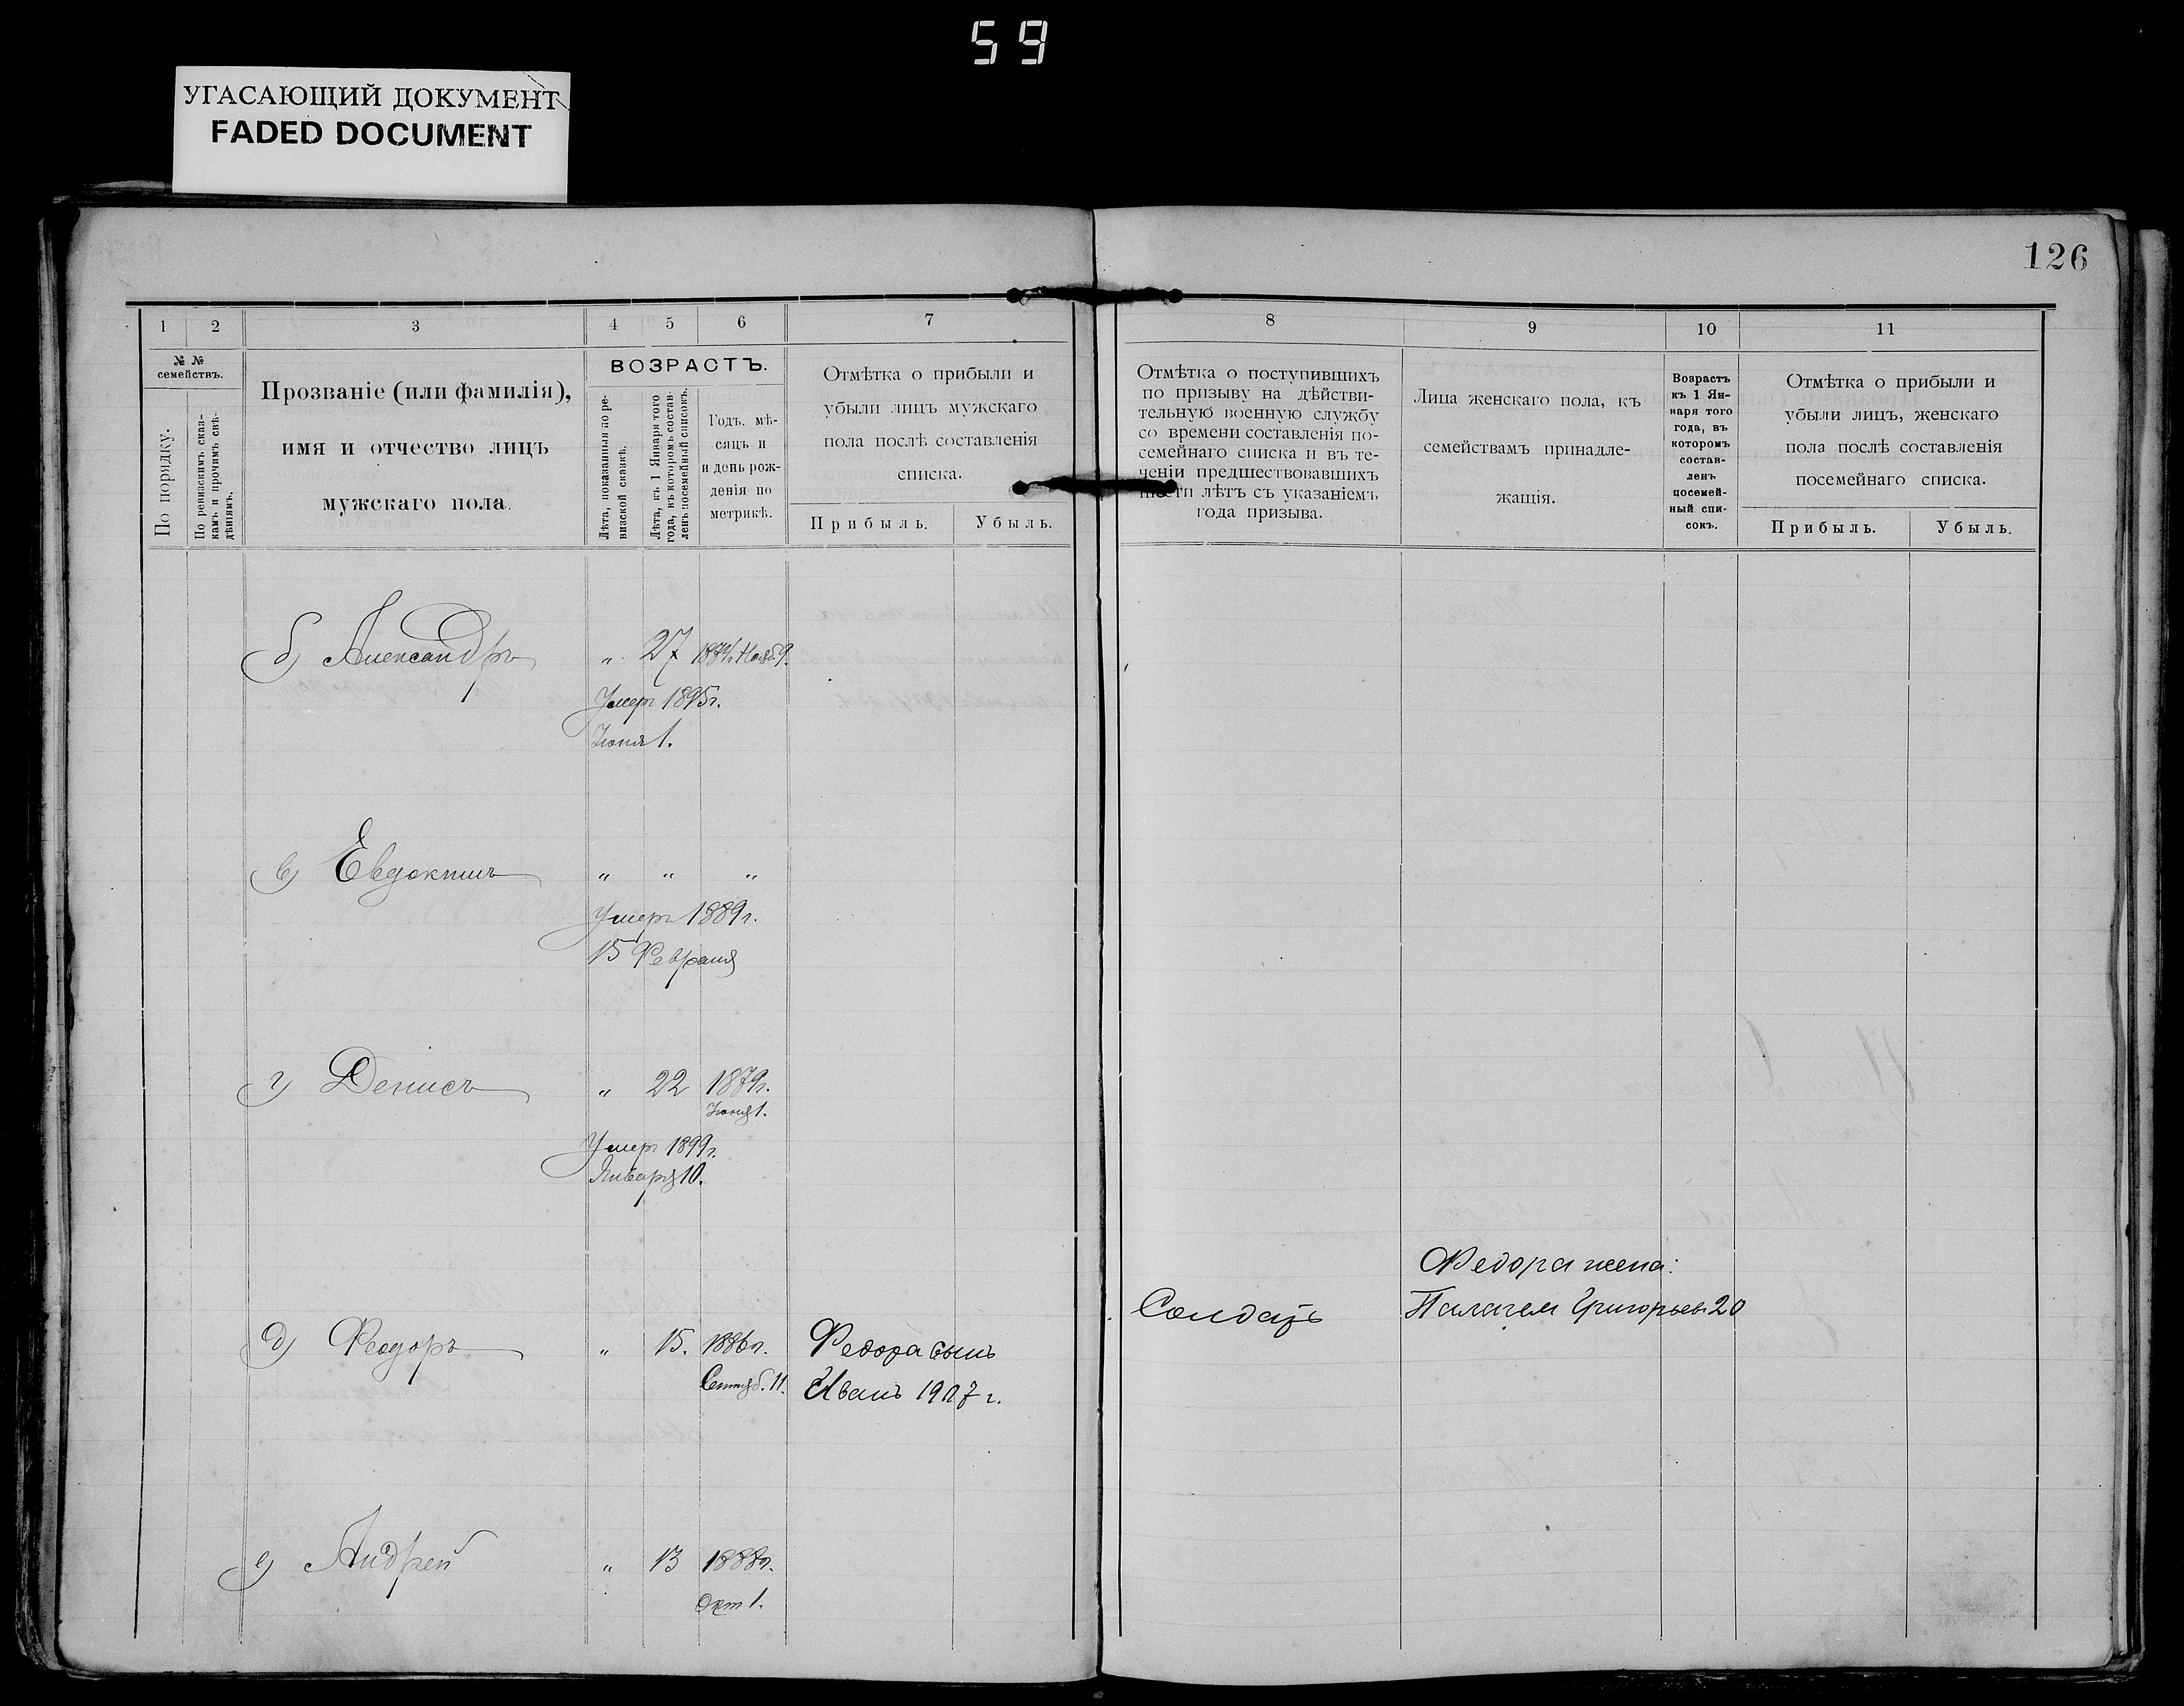 59
УГАСАЮЩИЙ ДОКУМЕНТ
FADED DOCUMENT
126
1 2 3 4 5 6 7
8 9 10 11
№ №
семействъ.
По порядку.
По ревизскимъ сказ-
камъ и прочимъ свѣ-
дѣніямъ.
Прозваніе (или фамилія),
имя и отчество лицъ
мужскаго пола.
ВОЗРАСТЪ.
Лѣта, показанныя по ре-
визской сказкѣ.
Лѣта, къ 1 Января того
года, въ которомъ состав-
ленъ посемейный списокъ.
Годъ, мѣ-
сяцъ и
и день рож-
денія по
метрикѣ.
Отмѣтка о прибыли и
убыли лицъ мужскаго
пола послѣ составленія
списка.
Прибыль. Убыль.
Отмѣтка о поступившихъ
по призыву на дѣйстви-
тельную военную службу
со времени составленія по-
семейнаго списка и въ те-
ченіи предшествовавшихъ
шести лѣтъ съ указаніемъ
года призыва.
Лица женскаго пола, къ
семействамъ принадле-
жащія.
Возрастъ
къ 1 Ян-
варя того
года, въ
которомъ
состав-
ленъ
посемей-
ный спи-
сокъ.
Отмѣтка о прибыли и
убыли лицъ, женскаго
пола послѣ составленія
посемейнаго списка.
Прибыль. Убыль.
б) Александръ " 27 1874г. Нояб. 9.
Умеръ 1895г.
Іюня 1.
в) Евдокимъ " " "
Умеръ 1889г.
15 Февраля
г) Денисъ " 22 1879г.
Іюня 1.
Умеръ 1899г.
Января 10.
Федора жена:
Солдатъ Палагея Григорьев. 20
д) Феодоръ " 15. 1886г. Федора сынъ
Сентяб. 11. Иванъ 1907 г.
е) Андрей " 13 1888г.
Окт 1.